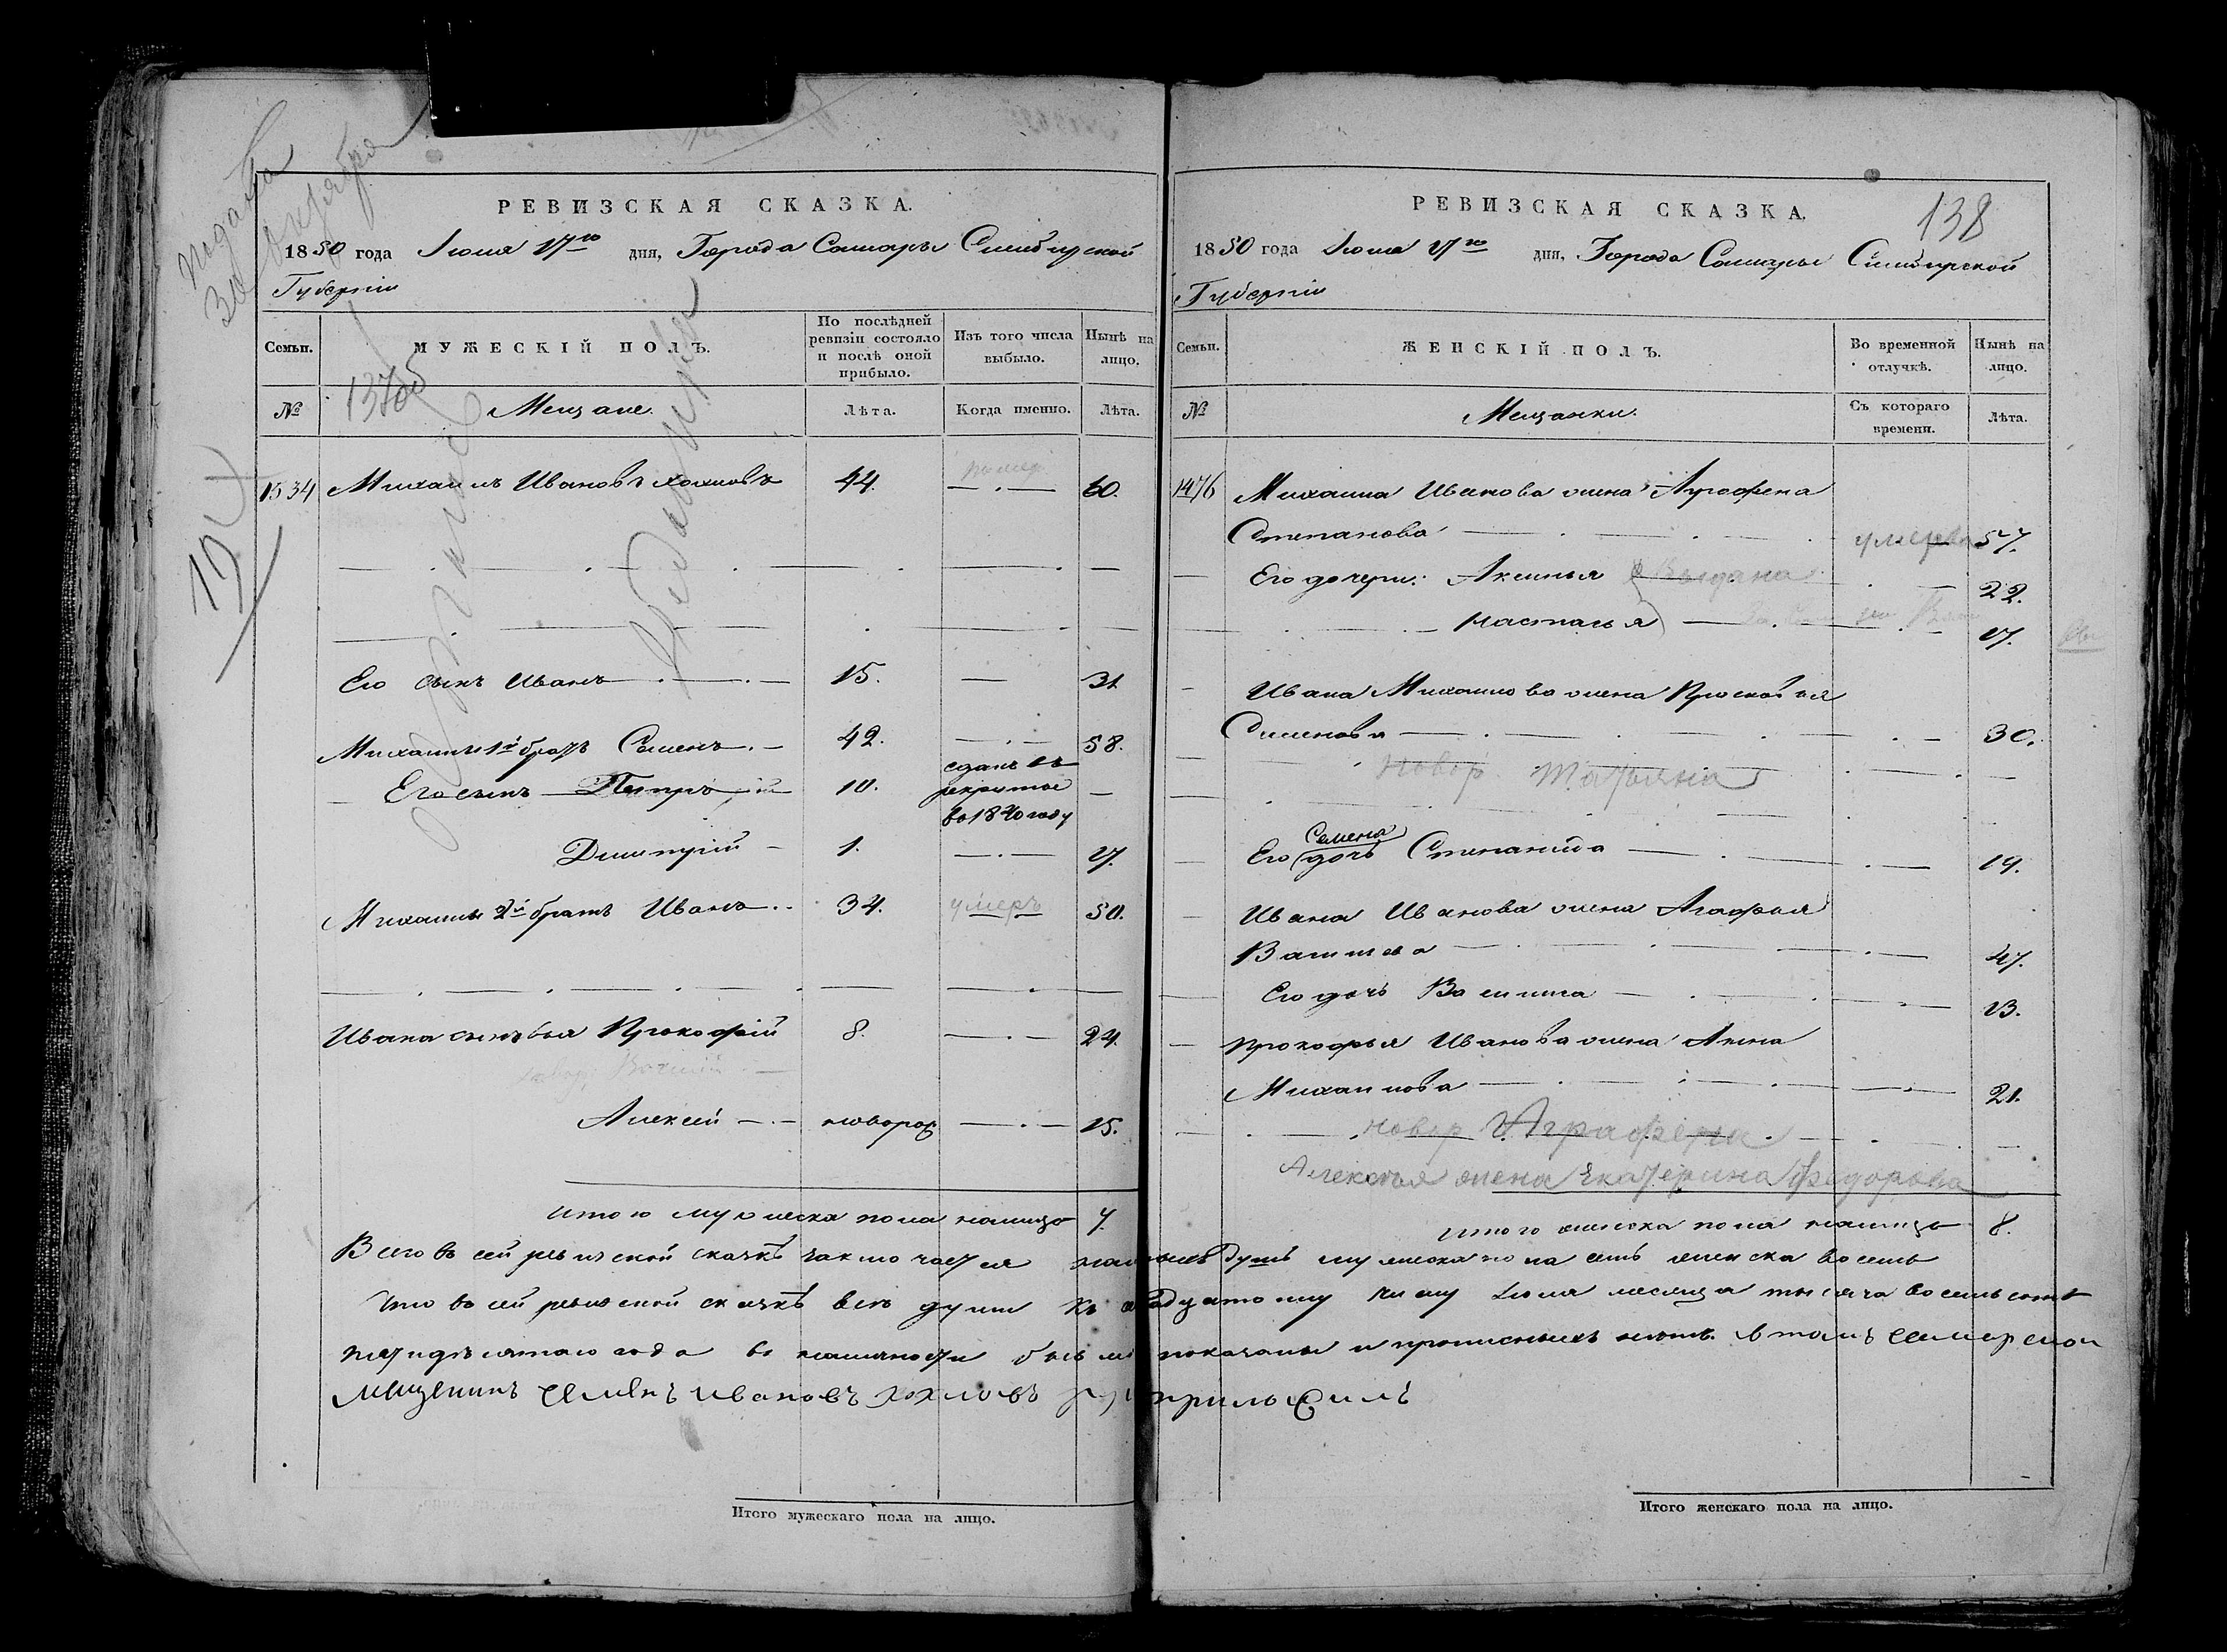 подана
30 октября
РЕВИЗСКАЯ СКАЗКА.
1850 года Июля 17го дня, Города Самары Симбирской
Губернiи
Семьи.
МУЖЕСКIЙ ПОЛЪ.
По послѣдней ревизiи состояло и послѣ оной прибыло.
Изъ того числа выбыло.
Нынѣ на лицо.
№
137об
Мещане.
Лѣта.
Когда именно.
Лѣта.
1534 Михаилъ Ивановъ Хохловъ 44. помер 60.
Его сынъ Иванъ 15. 31
Михаилы 1й братъ Семенъ. 42. 58.
Его сынъ Петръ 10. сданъ въ
рекруты
во 1840 году
Димитрiй 1. 17.
Михаилы 2й братъ Иванъ 34. умеръ 50.
Ивана сыновья Прокофiй 8. 24.
Алексей новорож 15.
Итого мужеска пола налицо 7.
РЕВИЗСКАЯ СКАЗКА.
138
1850 года Июля 17го дня, Города Самары Симбирской
Губернiи
Семьи.
ЖЕНСКIЙ ПОЛЪ.
Во временной отлучкѣ.
Нынѣ на лицо.
№
Мещанки.
Съ котораго времени.
Лѣта.
1476 Михаила Иванова жена Аграфена
Степанова умерла 57.
Его дочери: Аксинья Выдана 22.
Настасья 17.
Ивана Михайлова жена Прасковья
Семенова 30.
Новор Татьяна
Его Семена дочь Степанида 19.
Ивана Иванова жена Агафья
Васильева 47.
Его дочь Василиса 13.
Прокофья Иванова жена Анна
Михайлова 21.
новор Аграфена
Алексея жена Екатерина Федорова
Итого женска пола налицо 8.
Всего въ сей ревизской сказкѣ заключается наличныхъ душъ мужеска пола семь женска восемь
Что въ сей ревизской сказкѣ все души къ июля месяца тысяча восемьсотъ
пятидесятаго года въ наличности были показаны и прописныхъ нетъ. в томъ самарской
мещенинъ семенъ ивановъ хохловъ руку приложилъ
Итого мужескаго пола на лицо.
Итого женскаго пола на лицо.